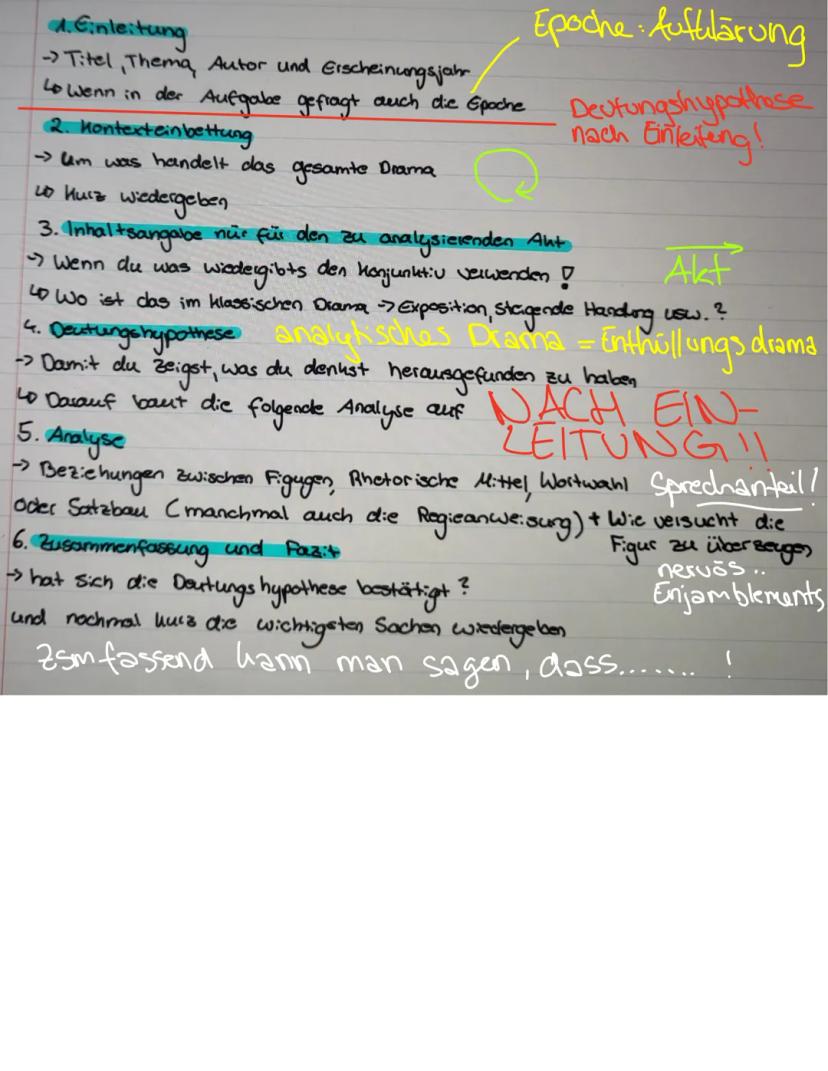 1. Einleitung
Epoche: Aufklärung
-> Titel, Thema, Autor und Erscheinungsjahr
↳ Wenn in der Aufgabe gefragt auch die Epoche
Deutungshypothese
nach Einleitung!
2. Kontexteinbettung
-> Um was handelt das gesamte Drama
↳ Kurz wiedergeben
3. Inhaltsangabe nur für den zu analysierenden Akt
-> Wenn du was wiedergibts den Konjunktiv verwenden !
Akt
↳ Wo ist das im klassischen Drama -> Exposition, steigende Handlung usw.?
4. Deutungshypothese
analytisches Drama = Enthüllungsdrama
-> Damit du zeigst, was du denkst herausgefunden zu haben
↳ Darauf baut die folgende Analyse auf
NACH EIN-
LEITUNG!!
5. Analyse
-> Beziehungen zwischen Figugen, Rhetorische Mittel, Wortwahl
Sprechanteil!
oder Satzbau (manchmal auch die Regieanweisung) + Wie versucht die
Figur zu überzeugen
6. Zusammenfassung und Fazit
nervös..
Enjamblements
-> hat sich die Deutungshypothese bestätigt?
und nochmal kurz die wichtigsten Sachen wiedergeben
Zsmfassend kann man sagen, dass........ !